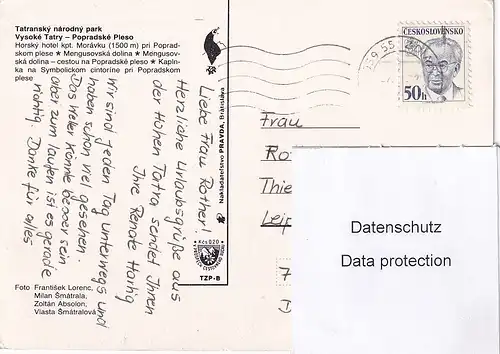 Tatranský národný park
Vysoké Tatry – Popradské Pleso
Horský hotel kpt. Morávku (1500 m) pri Poprad-
skom plese ★ Mengusovská dolina ★ Mengusov-
ská dolina – cestou na Popradské pleso ★ Kapln-
ka na Symbolickom cintoríne pri Popradskom
plese
Liebe Frau Rother!
Herzliche Urlaubsgrüße aus
der Hohen Tatra sendet Ihnen
Ihre Renate Hartig
Wir sind jeden Tag unterwegs und
haben schon viel gesehen.
Das Wetter könnte besser sein
aber zum laufen ist es gerade
richtig. Danke für alles
Foto František Lorenc,
Milan Šmátrala,
Zoltán Absolon,
Vlasta Šmátralová
Nakladatelstvo PRAVDA, Bratislava
Kčs 020
TZP-B
ČESKOSLOVENSKO
50h
Frau
Ro
Thie
Leip
7
D
Datenschutz
Data protection